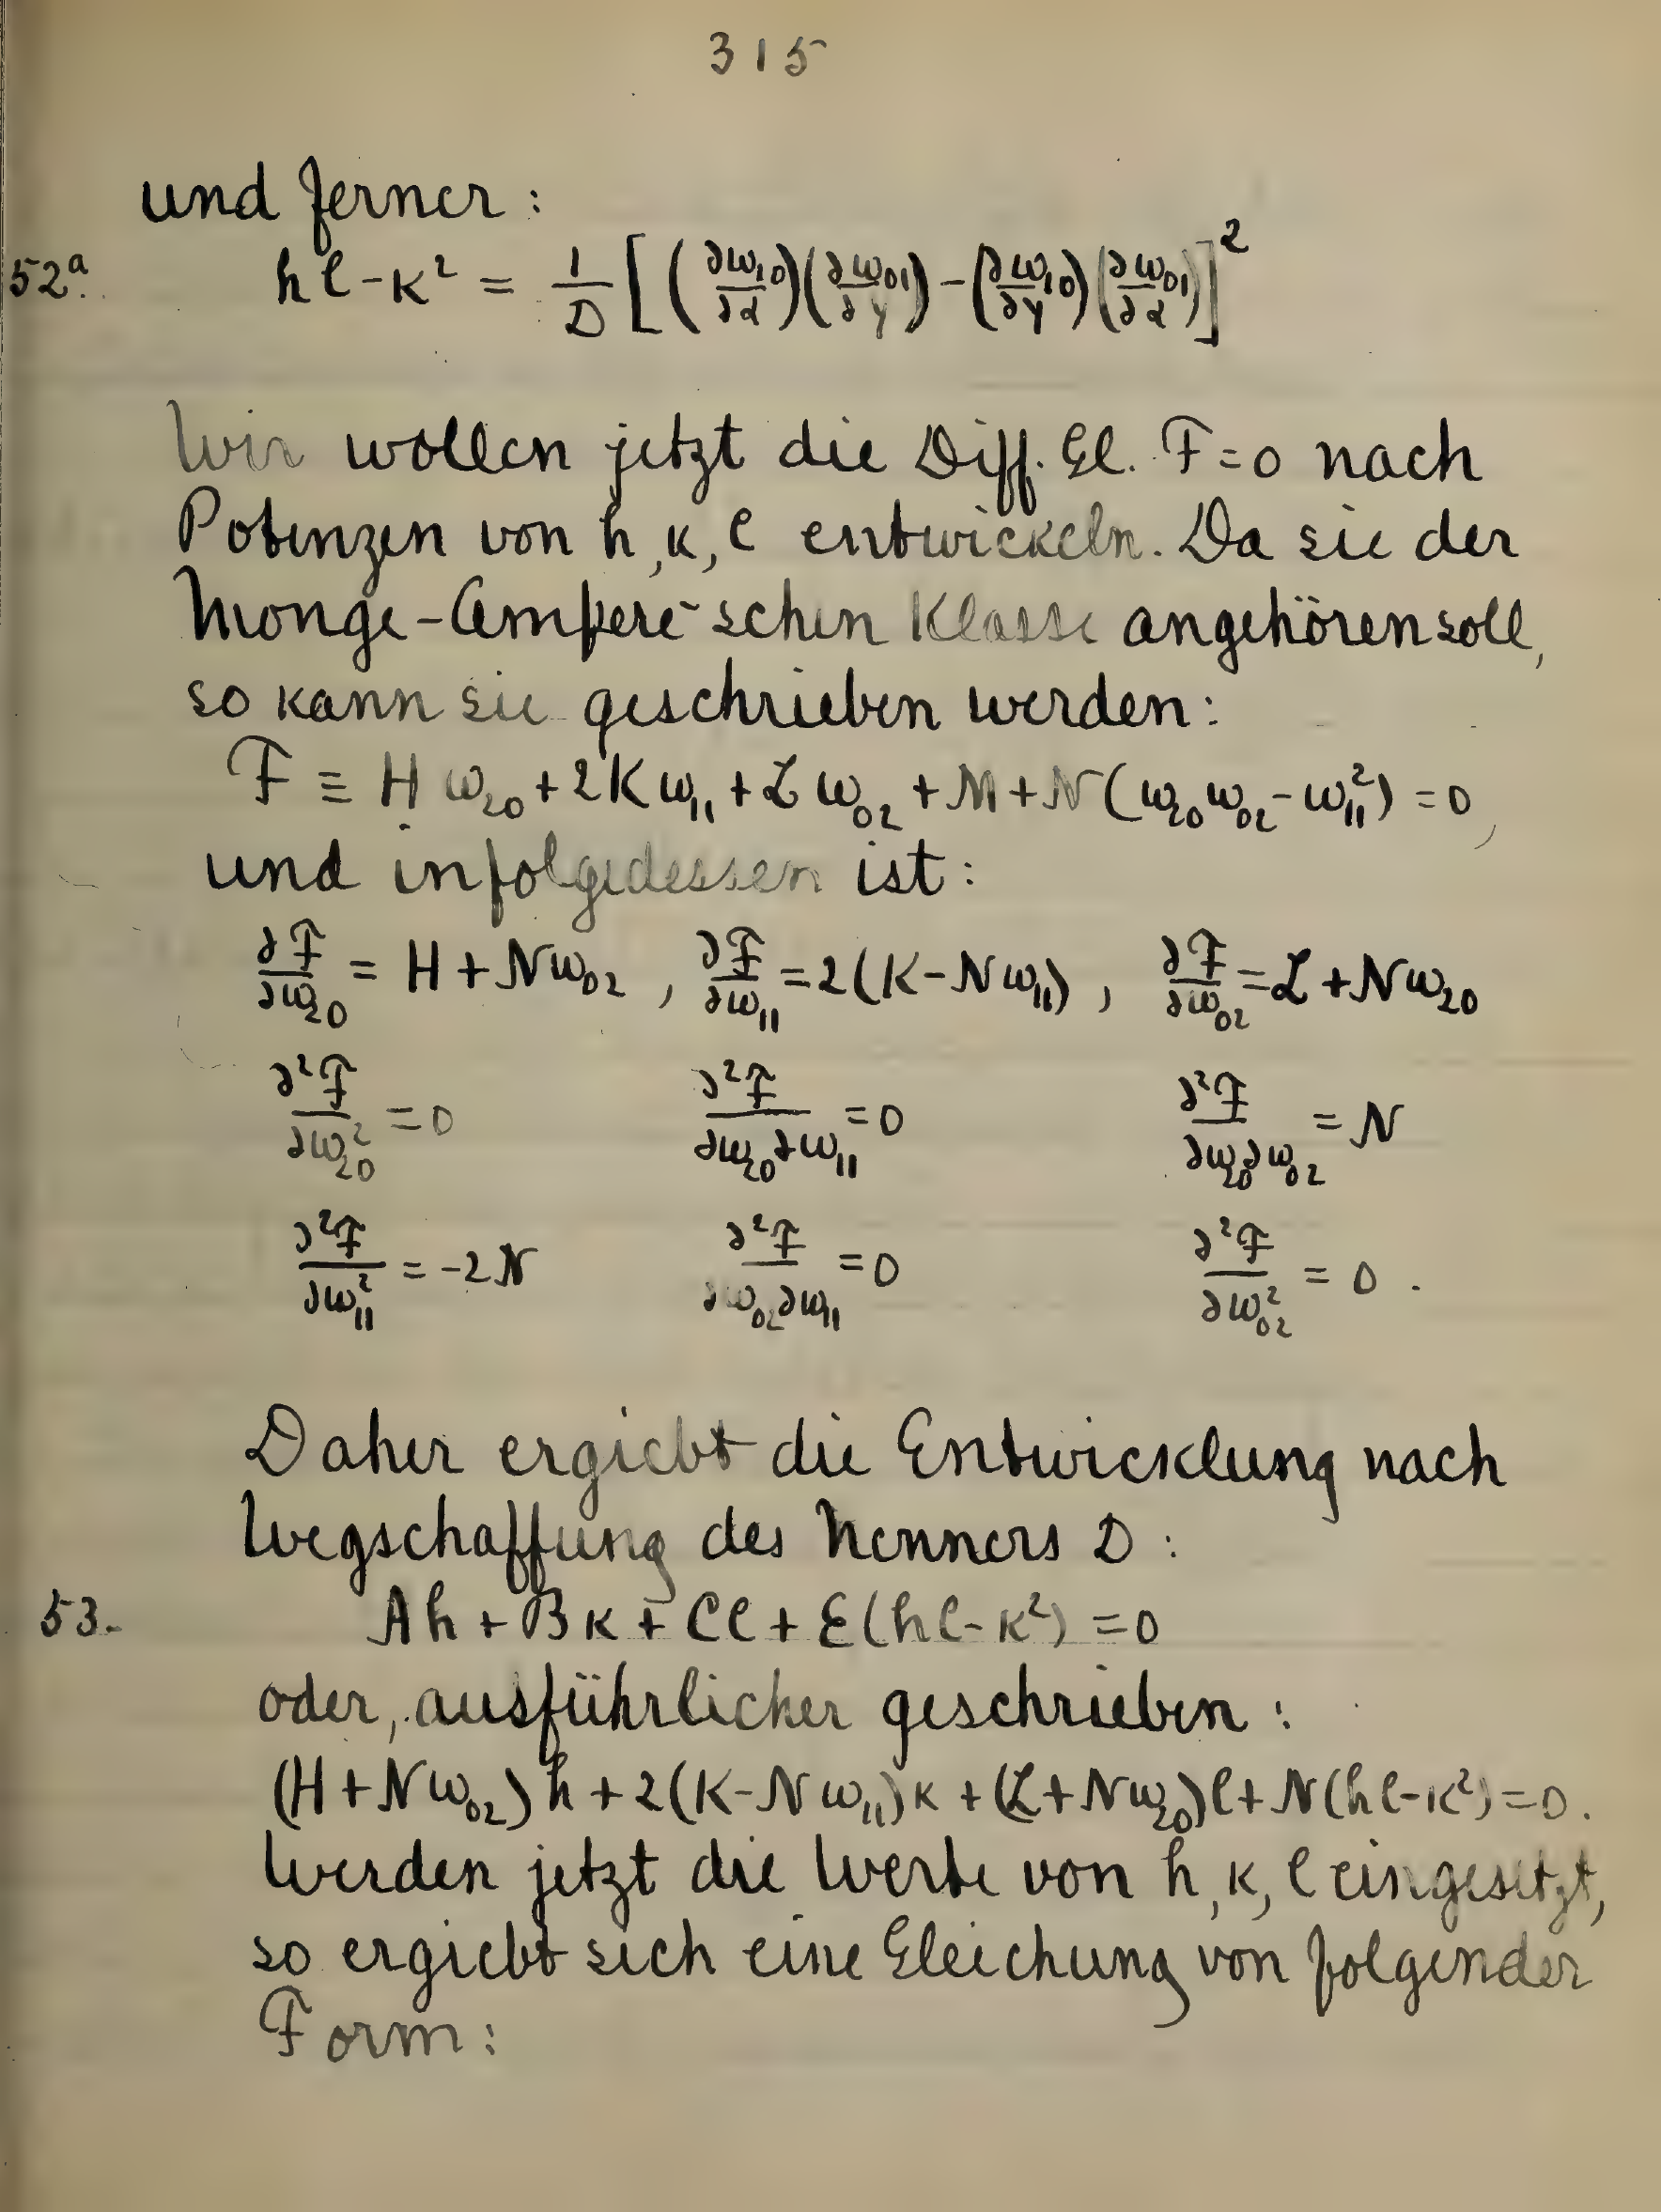 315
und ferner:
52a. hl-κ² = 1/D [(∂ω₁₀/∂α)(∂ω₀₁/∂γ) - (∂ω₁₀/∂γ)(∂ω₀₁/∂α)]²
Wir wollen jetzt die Diff. Gl. F=0 nach
Potenzen von h, κ, l entwickeln. Da sie der
Monge-Ampere-schen Klasse angehören soll,
so kann sie geschrieben werden:
F ≡ H ω₂₀ + 2K ω₁₁ + L ω₀₂ + M + N(ω₂₀ω₀₂ - ω₁₁²) = 0,
und infolgedessen ist:
∂F/∂ω₂₀ = H + Nω₀₂, ∂F/∂ω₁₁ = 2(K - Nω₁₁), ∂F/∂ω₀₂ = L + Nω₂₀
∂²F/∂ω₂₀² = 0 ∂²F/∂ω₂₀∂ω₁₁ = 0 ∂²F/∂ω₂₀∂ω₀₂ = N
∂²F/∂ω₁₁² = -2N ∂²F/∂ω₀₂∂ω₁₁ = 0 ∂²F/∂ω₀₂² = 0.
Daher ergiebt die Entwicklung nach
Wegschaffung des Nenners D:
53. Ah + Bκ + Cl + E(hl-κ²) = 0
oder, ausführlicher geschrieben:
(H + Nω₀₂)h + 2(K - Nω₁₁)κ + (L + Nω₂₀)l + N(hl-κ²) = 0.
Werden jetzt die Werte von h, κ, l eingesetzt,
so ergiebt sich eine Gleichung von folgender
Form: